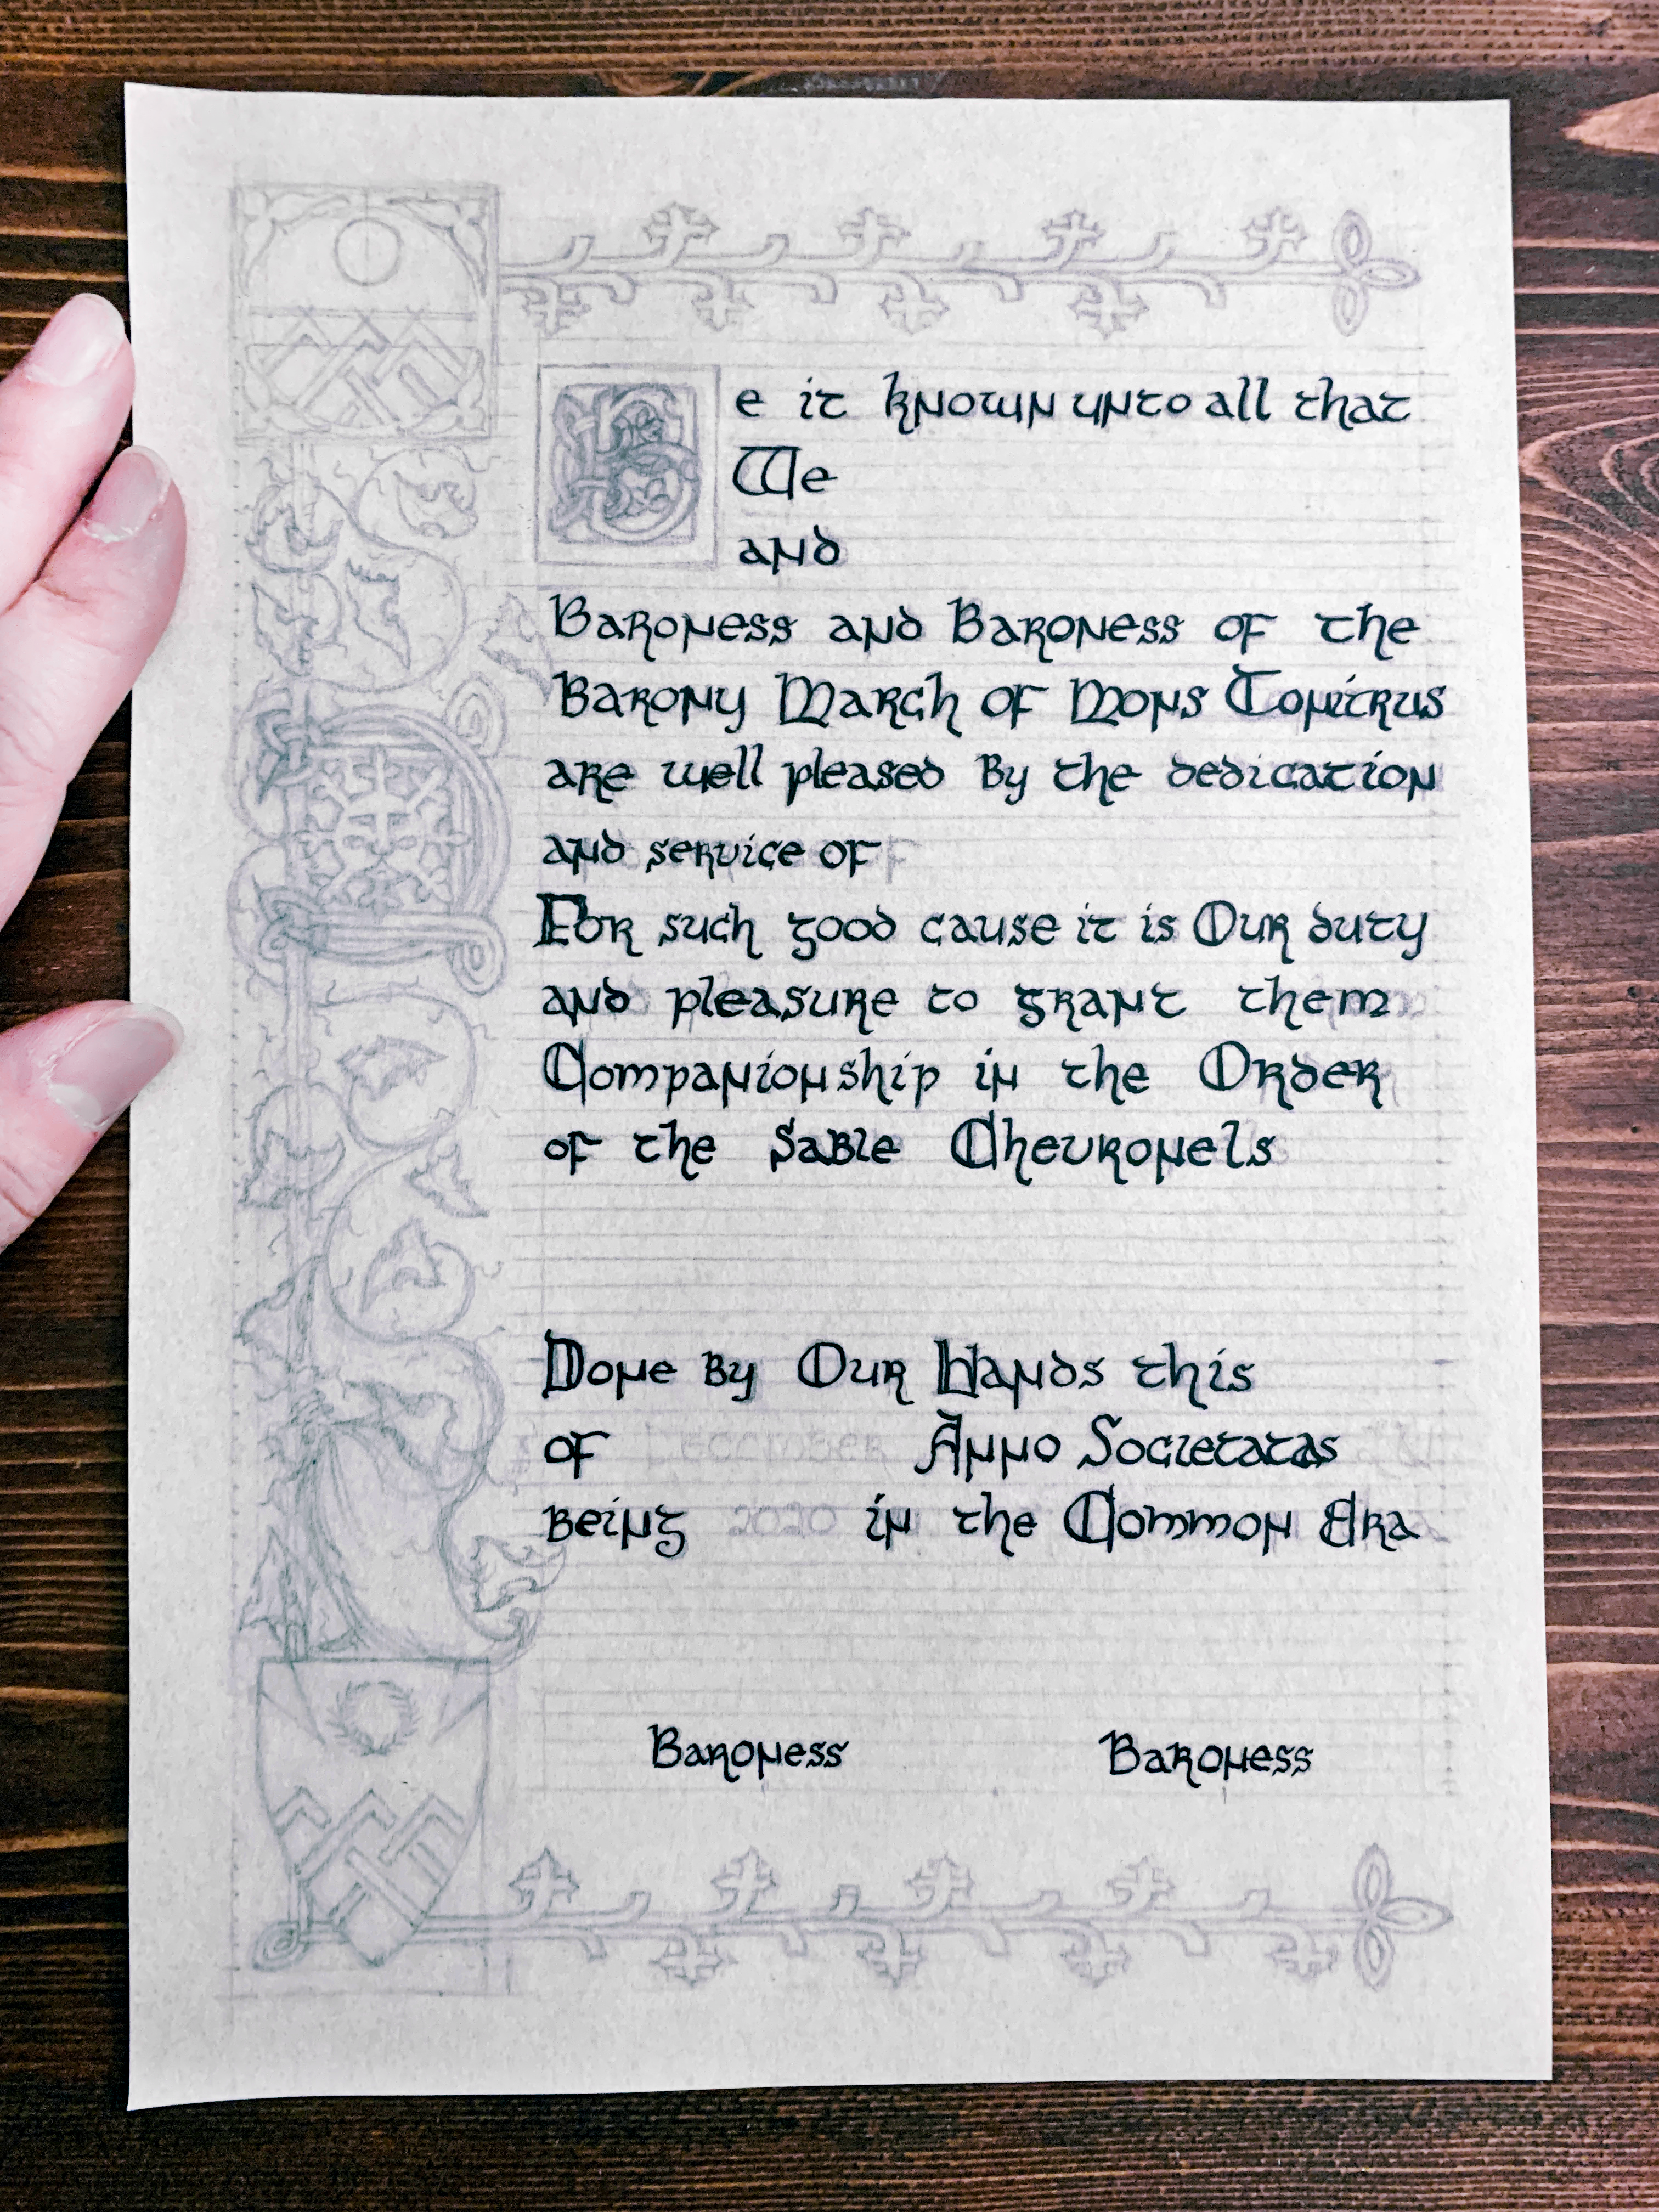 Be it known unto all that
We
and
Baroness and Baroness of the
Barony March of Mons Tonitrus
are well pleased By the dedication
and service of
For such good cause it is Our duty
and pleasure to grant them
Companionship in the Order
of the Sable Chevronels
Done By Our Hands this
of December Anno Societatas
Being 2020 in the Common Era
Baroness Baroness